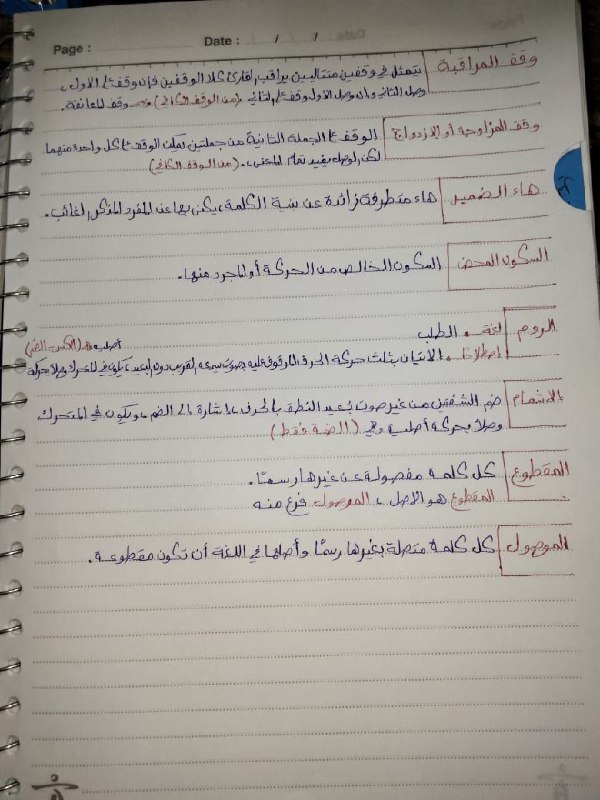 Page : Date : / /
وقف المراقبة يتمثل في وقفين متتاليين يراقب القارئ كلا الوقفين فإن وقف على الأول،
وصل الثاني وإن وصل الأول وقف على الثاني. (من الوقف الكافي) وقف المعانقة.
وقف المزاوجة أو الازدواج الوقف على الجملة الثانية من جملتين يمكن الوقف على كل واحدة منهما
لكن الوصل يفيد تمام المعنى. (من الوقف الكافي)
هاء الضمير هاء متطرفة زائدة عن بنية الكلمة، يكنى بها عن المفرد المذكر الغائب.
السكون المحض السكون الخالص من الحركة أو المجرد منها.
الروم لغة الطلب
اصطلاحا الإتيان بثلث حركة الحرف الموقوف عليه بصوت يسمعه القريب دون البعيد، يكون في المتحرك وصلا بحركة
أصلية (الكسر - الضم)
الإشمام ضم الشفتين من غير صوت بعيد النطق بالحرف إشارة إلى الضم، ويكون في المتحرك
وصلا بحركة أصلية وهي (الضمة فقط)
المقطوع كل كلمة مفصولة عن غيرها رسمًا.
المقطوع هو الأصل، الموصول فرع منه
الموصول كل كلمة متصلة بغيرها رسمًا وأصلها في اللغة أن تكون مقطوعة.